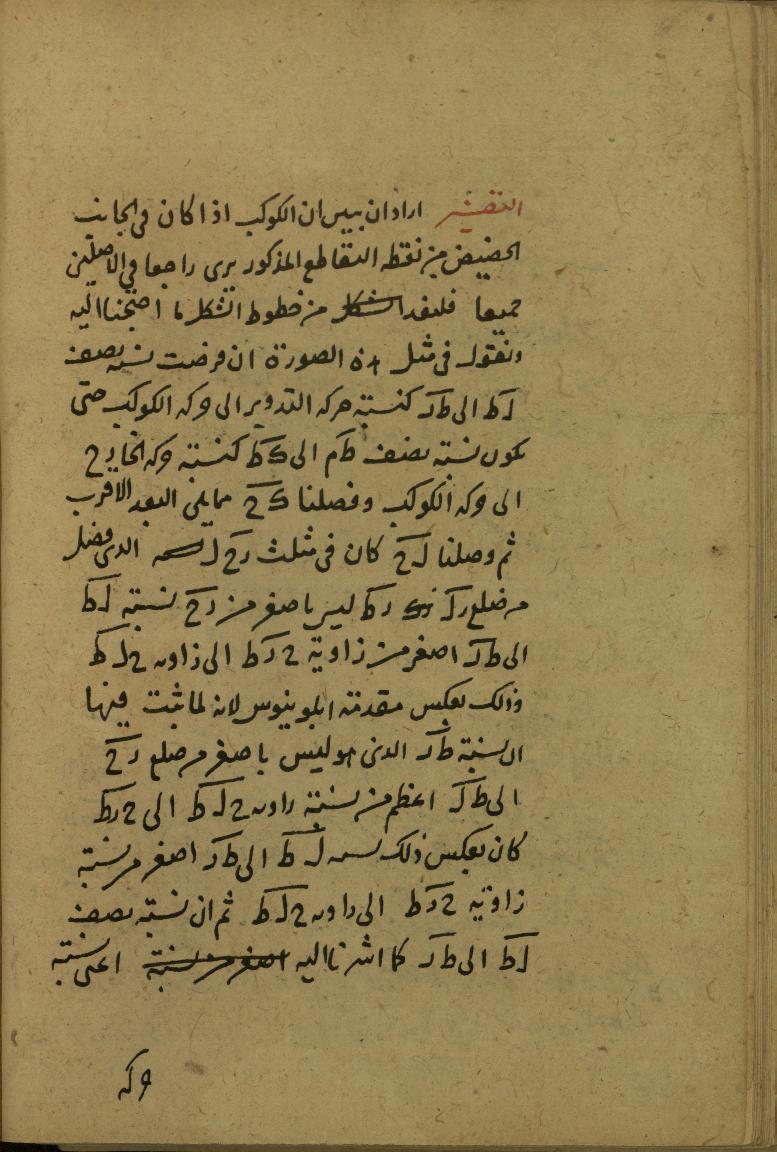 التفسير اراد ان يبين ان الكوكب اذا كان في الجانب
الحضيض من نقطه التقاطع المذكور يرى راجعا في الاصلين
جميعا فليعد الشكل من خطوط الشكل ما احتجنا اليه
ونقول في مثل هذه الصورة ان فرضت نسبه نصف
لط الى طر كنسبته حركه التدوير الى حركه الكوكب حتى
يكون نسبته نصف طم الى كط كنسبته حركه الخارج
الى حركه الكوكب وفصلنا كح مما يلي البعد الاقرب
ثم وصلنا لح كان في مثلث رح ل الذي فضل
من ضلع رل رط ليس باصغر من رح نسبته لط
الى طر اصغر من زاوية ح رط الى زاويه ح لط
وذلك بعكس مقدمته ابلونيوس لانه لما ثبت فيها
ان نسبته طر الذي هو ليس باصغر من ضلع رح
الى طل اعظم من نسبته زاويه ح لط الى ح رط
كان بعكس ذلك نسبه لط الى طر اصغر من نسبته
زاوية ح رط الى زاويه ح لط ثم ان نسبته نصف
لط الى طر كما اشرنا اليه اصغر من نسبته اعني نسبته
حركه